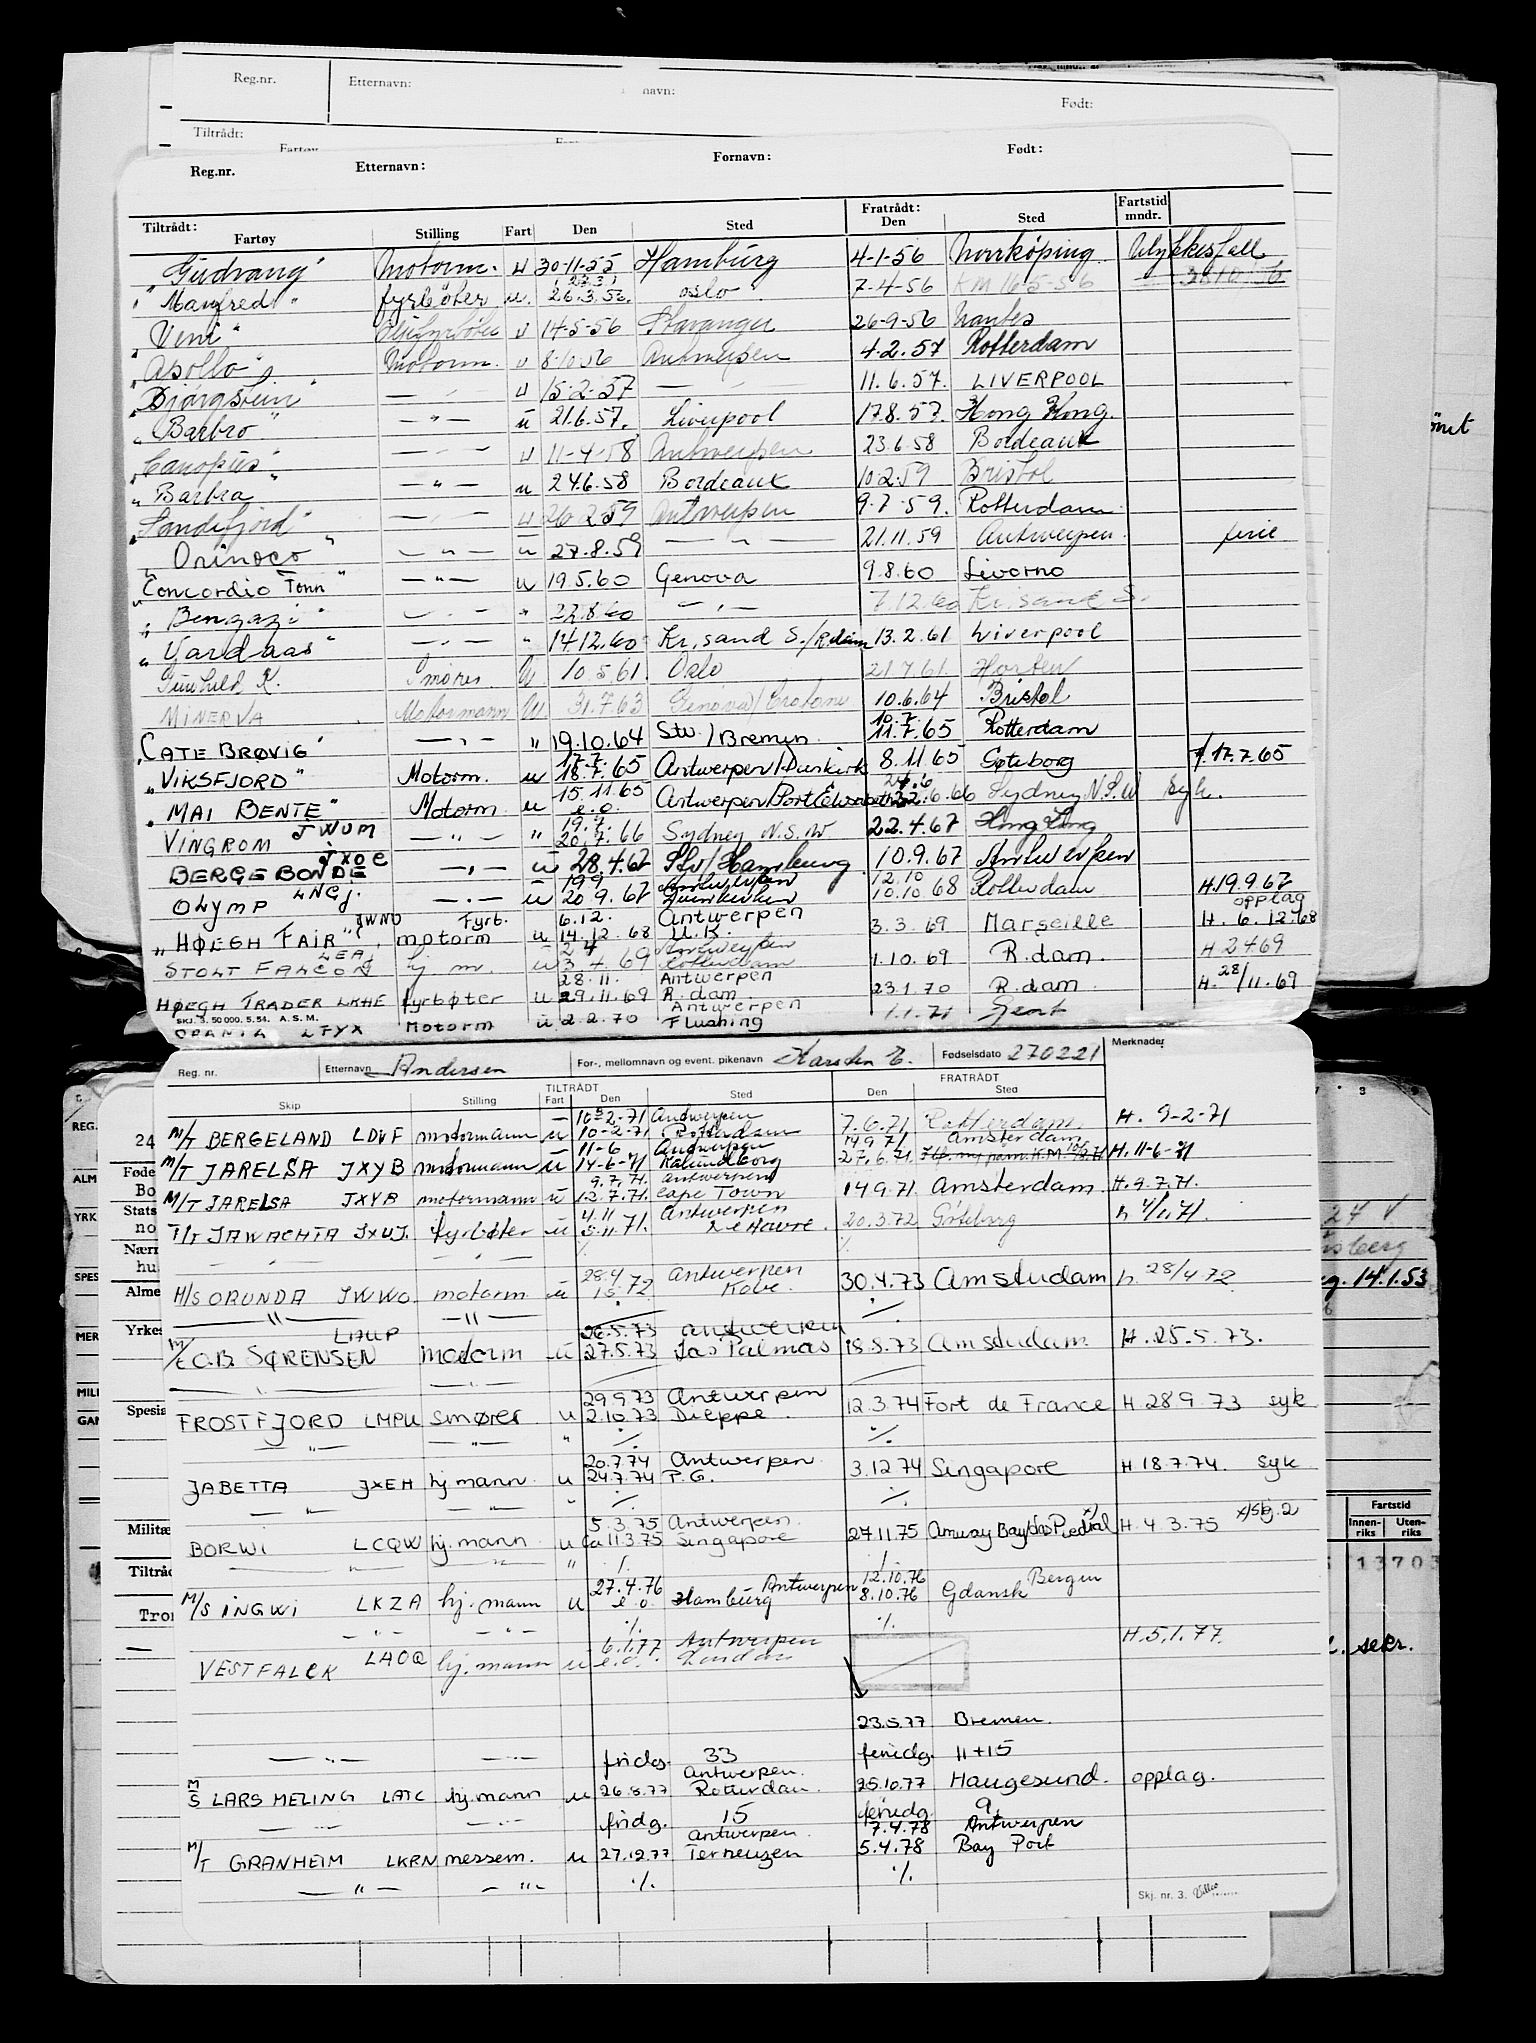 Reg.nr. Etternavn: navn: Født:
Tiltrådt: Fartøy
Reg.nr. Etternavn: Fornavn: Født:
Tiltrådt: Fratrådt: Fartstid
Fartøy Stilling Fart Den Sted Den Sted mndr.
"Gudvang" Motorm. u 30-11-55 Hamburg 4-1-56 Norrköping Ulykkesfall
"Manfred" fyrbøter u. 26.3.56. oslo 7-4-56 KM 16-5-56
"Veni" u 14-5-56 Stavanger 26-9-56 Nantes
"Apollo" Motorm. u 8-10-56 Antwerpen 4.2.57 Rotterdam
"Bjørgstein" — " — u 15-2-57 — " — 11.6.57. LIVERPOOL
"Barbro" — " — u 21.6.57. Liverpool 17.8.57. Hong Kong.
"Canopus" — " — u 11-4-58 Antwerpen 23.6.58 Bordeaux
"Barbra" — " — u 24.6.58 Bordeaux 10-2-59 Bristol
"Sandefjord" — " — u 26-2-59 Antwerpen 9.7.59. Rotterdam
"Orinoco" — " — u 27.8.59 — " — 21.11.59 Antwerpen. ferie
"Concordio Tonn" — " — u 19.5.60 Genova 9.8.60 Livorno
"Bengazi" — " — " 22.8.60 — " — 7.12.60 Kr.sand S.
"Vardaas" — " — " 14.12.60 Kr.sand S./R.dam 13.2.61 Liverpool
Gunhild K. Smører. u 10.5.61. Oslo 21.7.61. Horten
MINERVA Motormann u 31.7.63 Genova/Crotone 10.6.64 Bristol
10.7.
"CATE BRØVIG" — " — " 19.10.64 Stv./Bremen 11.7.65 Rotterdam
17.7.
"VIKSFJORD" Motorm. u 18.7.65 Antwerpen/Dunkirk 8.11.65 Göteborg 17.7.65
15.11.65 24.6
"MAI BENTE" Motorm u e.o. Antwerpen/Port Elisabeth 6.66 Sydney N.S.W Syk.
JWUM 19.7.
VINGROM — " — " 20.7.66 Sydney N.S.W 22.4.67 Hong Kong
JXOC
BERGE BONDE — " — u 28.4.67 Stv/Hamburg 10.9.67 Antwerpen
19.9 Antwerpen 12.10
OLYMP LNCJ. — " — u 20.9.67 Dunkirken 10.10 68 Rotterdam H.19.9.67
opplag
JWNO Fyrb. 6.12. Antwerpen
"HØEGH FAIR" motorm u 14.12.68 U.K. 3.3.69 Marseille H. 6.12.68
2.4 Antwerpen
STOLT FALCON hj. m. u 3.4.69 Rotterdam 1.10.69 R.dam. H 2.4.69
28.11. Antwerpen
HØEGH TRADER LKHE fyrbøter u 29.11.69 R.dam. 23.1.70 R.dam H. 28/11.69
SKJ. 3. 50 000. 5. 54. A.S.M. Antwerpen
LFYX Motorm u 2.2.70 Flushing 1.1.71 Gent
Reg. nr. Etternavn Andersen For-, mellomnavn og event. pikenavn Karsten E. Fødselsdato 270221 Merknader
TILTRÅDT FRATRÅDT
Skip Stilling Fart Den Sted Den Sted
10-2-71 Antwerpen
M/T BERGELAND LDVF motormann u 10-2-71 Rotterdam 7.6.71 Rotterdam H. 9-2-71
11-6 Antwerpen 14.9.71. Amsterdam
M/T JARELSA JXYB motormann u 14-6-71 Kalundborg 27.6.71. H. 11-6-71
9.7.71. Antwerpen
M/T JARELSA JXYB motormann u 12.7.71. Cape Town 14.9.71 Amsterdam. H. 9.7.71.
4.11 Antwerpen
T/T JAWACHTA JXUJ. fyrbøter u 5.11.71. Le Havre. 20.3.72 Göteborg h 4/11.71.
— " — — " — ./. ./.
28.4 Antwerpen
M/S ORUNDA JWWO. motorm u 1.5.72 Kobe. 30.4.73 Amsterdam h. 28/4 72
— " — — " — ./. ./.
LHUP 26.5.73 antwerpen
M/T O.B. SØRENSEN motorm u 27.5.73 Las Palmas 18.8.73 Amsterdam H. 25.5.73.
— " — — " —
29.9.73 Antwerpen
FROSTFJORD LMPU smører u 2.10.73 Dieppe. 12.3.74 Fort de France H 28.9.73 syk
— " — — " — " ./. ./.
20.7.74 Antwerpen
JABETTA JXEH hj.mann u 24.7.74 P.G. 3.12.74 Singapore H 18.7.74. syk
— " — — " — " ./. ./.
5.3.75 Antwerpen. x/Skj. 2
BORWI LCQW hj.mann u Ca 11.3.75 Singapore 27.11.75 Amuay Bay/las Piedral x) H. 4.3.75
— " — — " — " ./. ./.
27.4.76 Antwerpen 12.10.76 Bergen
M/S INGWI LKZA hj. mann u e.o. Hamburg 8.10.76 Gdansk
— " — — " — ./. ./.
6.1.77 Antwerpen H.5.1.77.
VESTFALCK LAOQ hj. mann u e.o. London
23.5.77 Bremen.
— " — — " — fridg. 33 feridg. 11+15
Antwerpen.
M/S LARS MELING LATC hj.mann u 26.8.77 Rotterdam. 25.10.77 Haugesund. opplag.
— " — — " — fridg. 15 feridg. 9.
Antwerpen. 7.4.78 Antwerpen
M/T GRANHEIM LKRN messem. u 27.12.77 Terneuzen 5.4.78 Bay Port
— " — — " — ./. ./.
Skj. nr. 3.
REG.
24
Føde
ALM Bo
Stats
YRK no
Nærm
hu
SPES
Alme
MER Yrkes
MILI
GAN Spesia
Militæ
Tiltråd
Tror
24 V
nsberg
g. 14.1.53
Fartstid
Innen-riks Uten-riks
13703
. sekr.